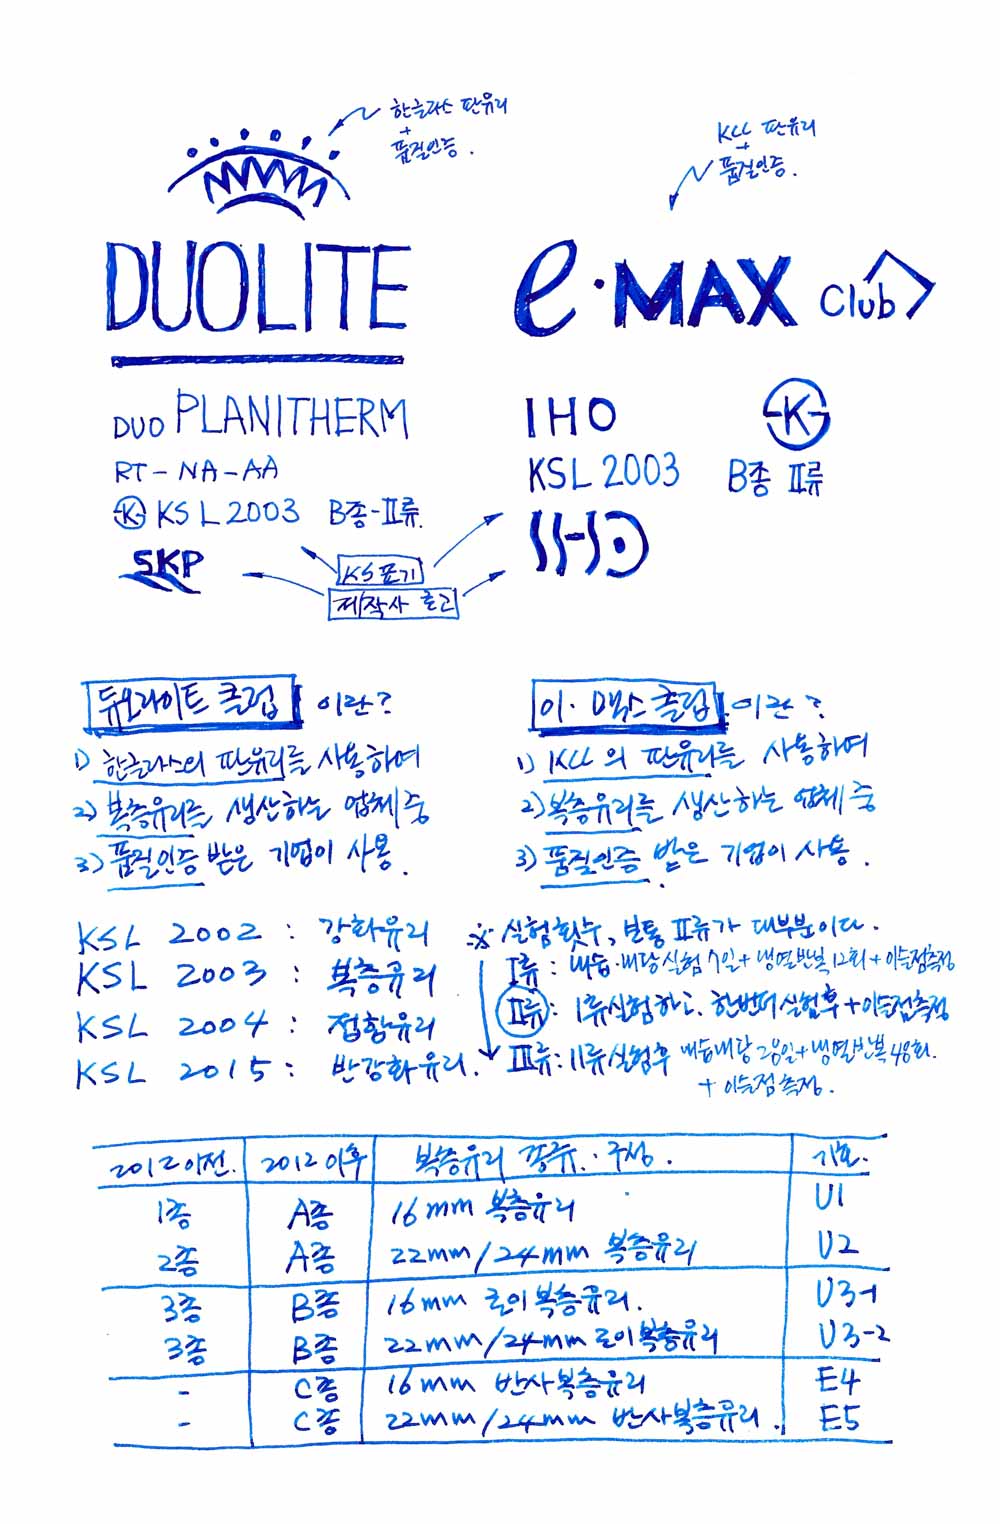 한글라스 판유리
+
품질인증.
KCC 판유리
+
품질인증.
DUOLITE
e·MAX Club
DUO PLANITHERM
RT-NA-AA
K KSL2003 B종-II류.
SKP
IHO
K
KSL 2003 B종 II류
KS표기
제작사 로고
듀오라이트 클럽 이란?
1) 한글라스의 판유리를 사용하여
2) 복층유리를 생산하는 업체 중
3) 품질인증 받은 기업이 사용.
이·맥스클럽 이란?
1) KCC의 판유리를 사용하여
2) 복층유리를 생산하는 업체 중
3) 품질인증 받은 기업이 사용.
KSL 2002 : 강화유리
KSL 2003 : 복층유리
KSL 2004 : 접합유리
KSL 2015 : 반강화유리.
※ 실험횟수, 보통 II류가 대부분이다.
I류 : 내습·내광실험 7일+냉열반복 12회+이슬점측정
II류 : I류실험하고, 한번더 실험후+이슬점측정
III류 : II류실험후 내습내광 28일+냉열반복 48회.
+ 이슬점 측정.
2012이전. 2012이후 복층유리 종류·구성. 기호.
1종 A종 16mm 복층유리 U1
2종 A종 22mm/24mm 복층유리 U2
3종 B종 16mm 로이복층유리. U3-1
3종 B종 22mm/24mm 로이복층유리 U3-2
- C종 16mm 반사복층유리 E4
- C종 22mm/24mm 반사복층유리. E5